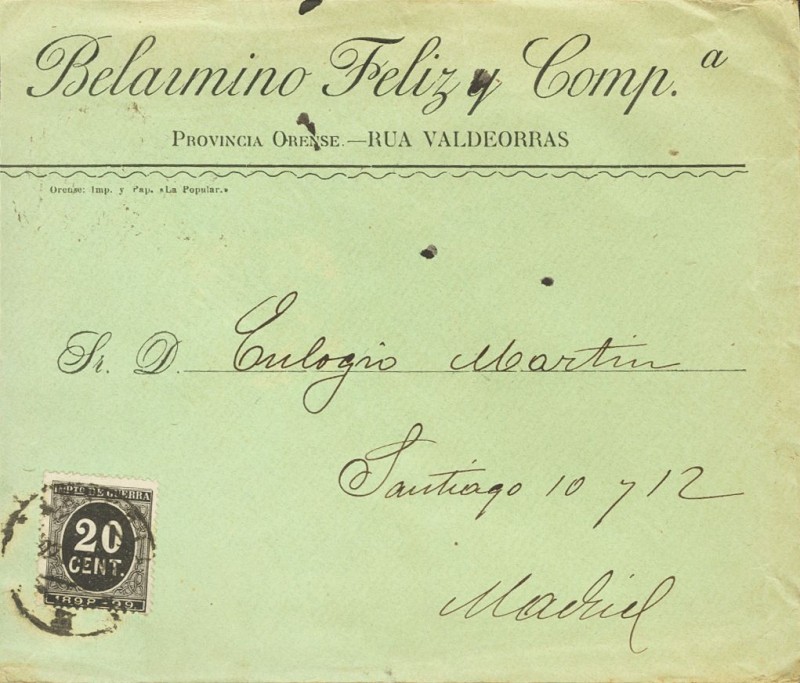 Belarmino Feliz y Comp.ª
Provincia Orense.—RUA VALDEORRAS
Orense: Imp. y Pap. «La Popular.»
Sr. D. Eulogio Martin
Santiago 10 y 12
Madrid
IMPTO DE GUERRA
20
CENT.
1898-99